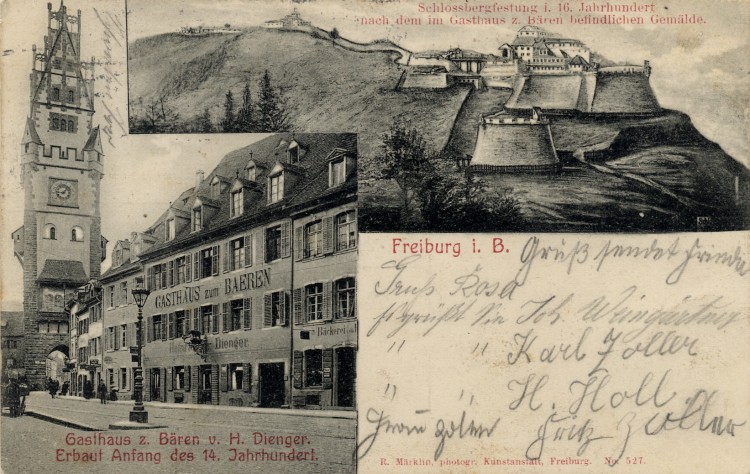 Schlossbergfestung i. 16. Jahrhundert
nach dem im Gasthaus z. Bären befindlichen Gemälde.
GASTHAUS zum BAEREN
Dienger
Bäckerei
Freiburg i. B.
Gruß sendet
Gruß Rosa
Joh. Weingärtner
" " Karl Zoller
" " H. Holl
Frau Zoller Fritz Zoller
Gasthaus z. Bären v. H. Dienger.
Erbaut Anfang des 14. Jahrhundert.
R. Märklin, photogr. Kunstanstalt, Freiburg. No. 527.